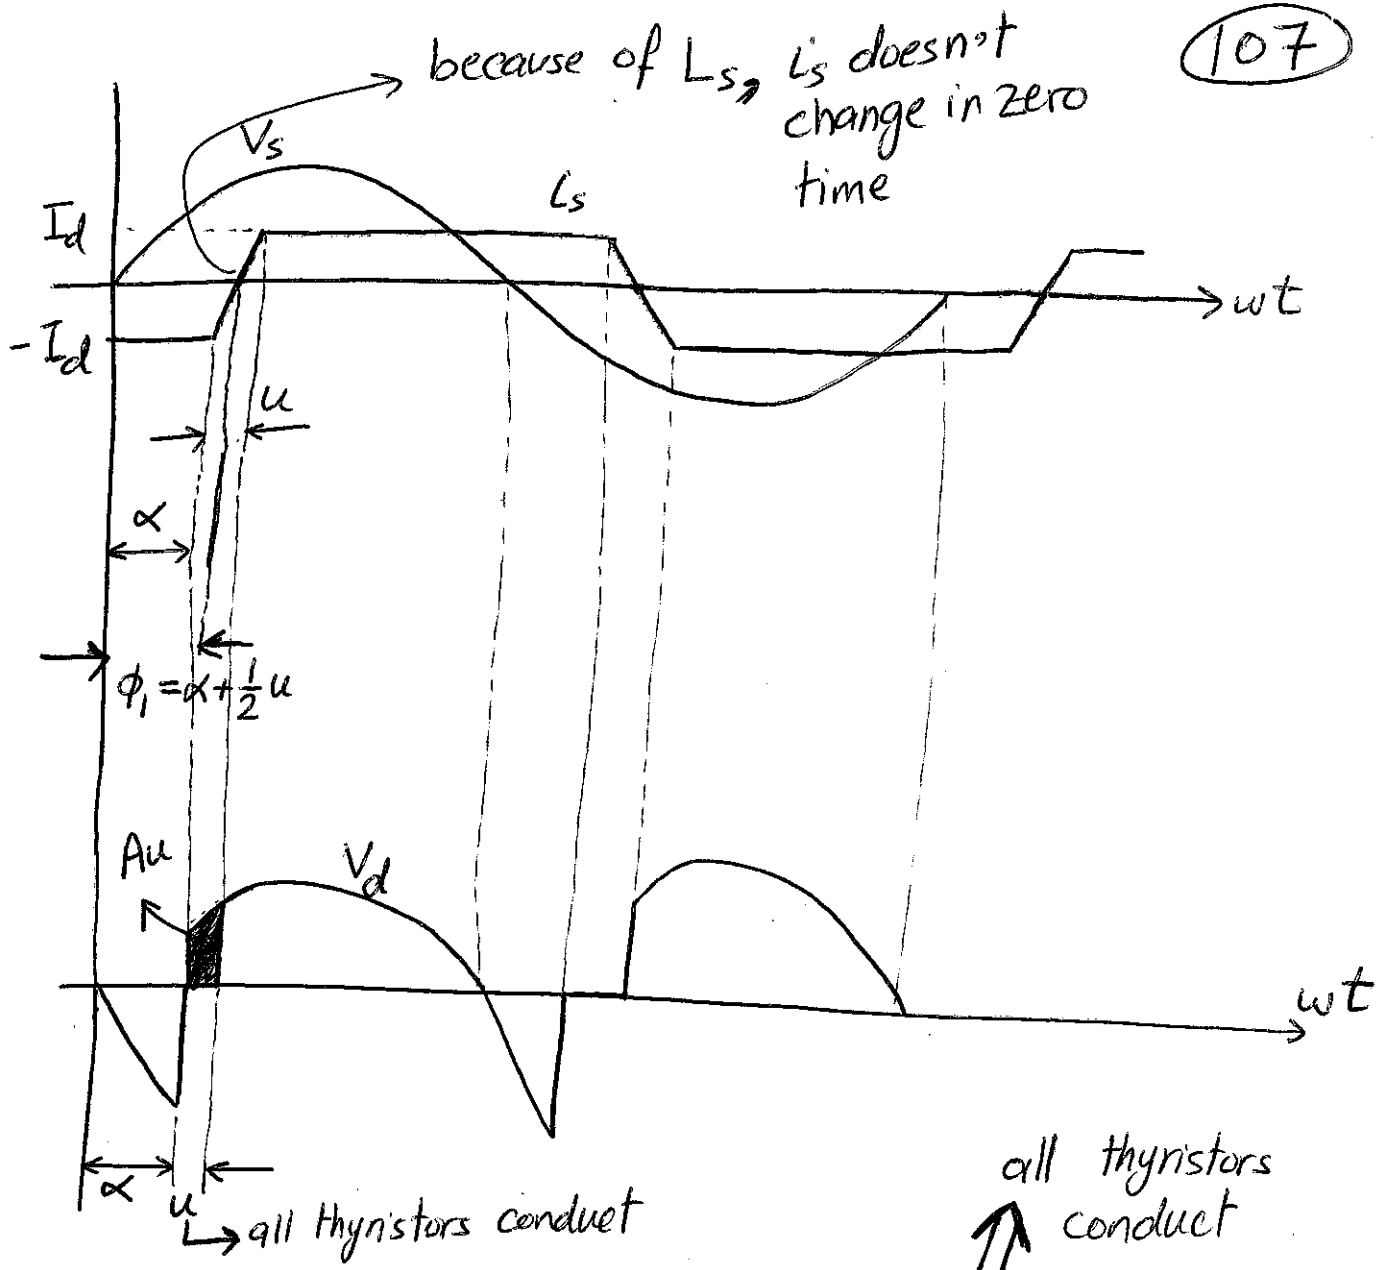 107
because of Ls, is doesn't
change in zero
time
Vs
is
Id
wt
-Id
u
α
ϕ1 = α + 1/2 u
Au
Vd
wt
α
u
all thyristors conduct
all thyristors
conduct